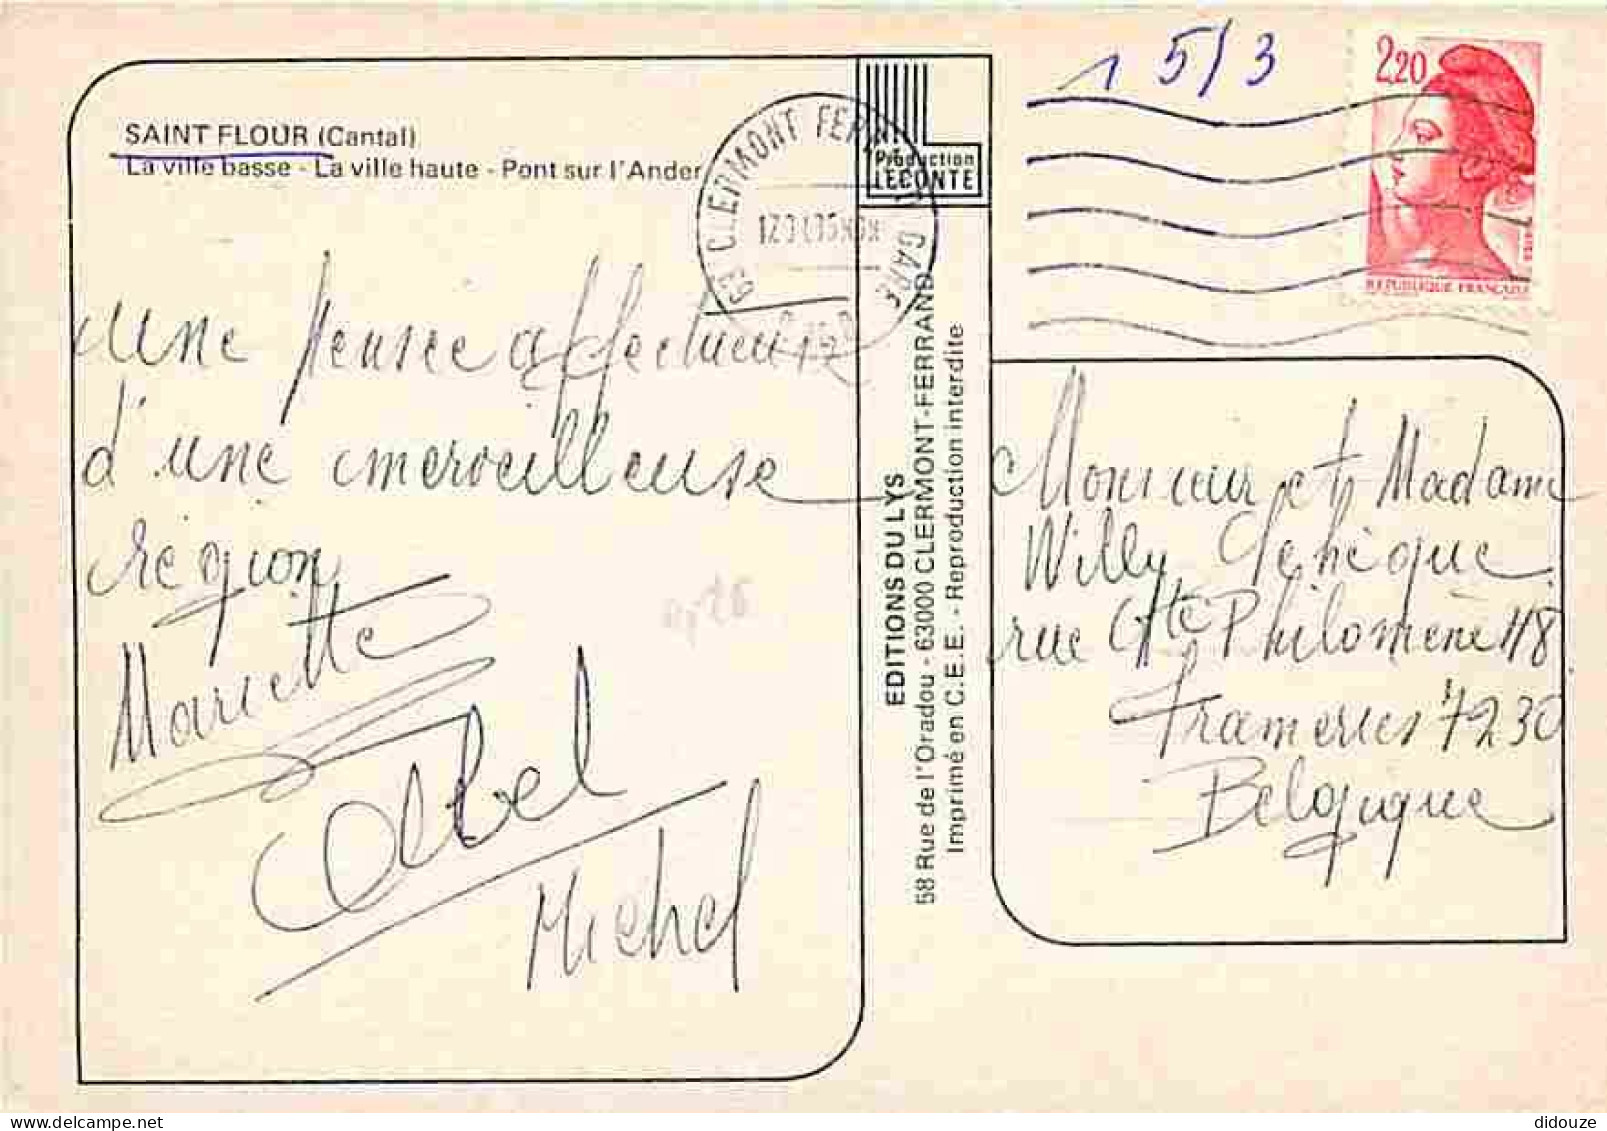 15/3
2,20
REPUBLIQUE FRANÇAISE
SAINT FLOUR (Cantal)
La ville basse - La ville haute - Pont sur l'Ander
Production
LECONTE
63 CLERMONT FERRAND GARE
Une pensée affectueuse
d'une merveilleuse
région
Mariette
Abel
Michel
EDITIONS DU LYS
58 Rue de l'Oradou - 63000 CLERMONT-FERRAND
Imprimé en C.E.E. - Reproduction interdite
Monsieur et Madame
Willy
rue Ste Philomène 118
Frameries 7230
Belgique
didouze